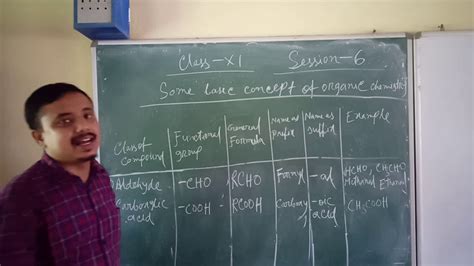 Class-XI Session-6
Some basic concept of organic chemistry
Class of compound Functional group General Formula Name as prefix Name as suffix Example
Aldehyde -CHO RCHO Formyl -al HCHO, CH3CHO Methanal Ethanal
Carboxylic acid -COOH RCOOH Carboxy -oic acid CH3COOH